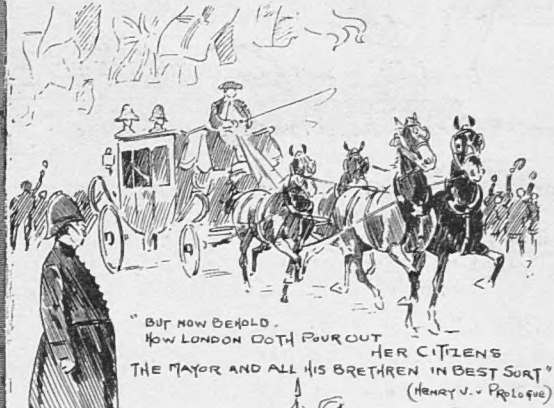 "BUT NOW BEHOLD.
HOW LONDON DOTH POUR OUT
HER CITIZENS
THE MAYOR AND ALL HIS BRETHREN IN BEST SORT"
(HENRY V. v PROLOGUE)